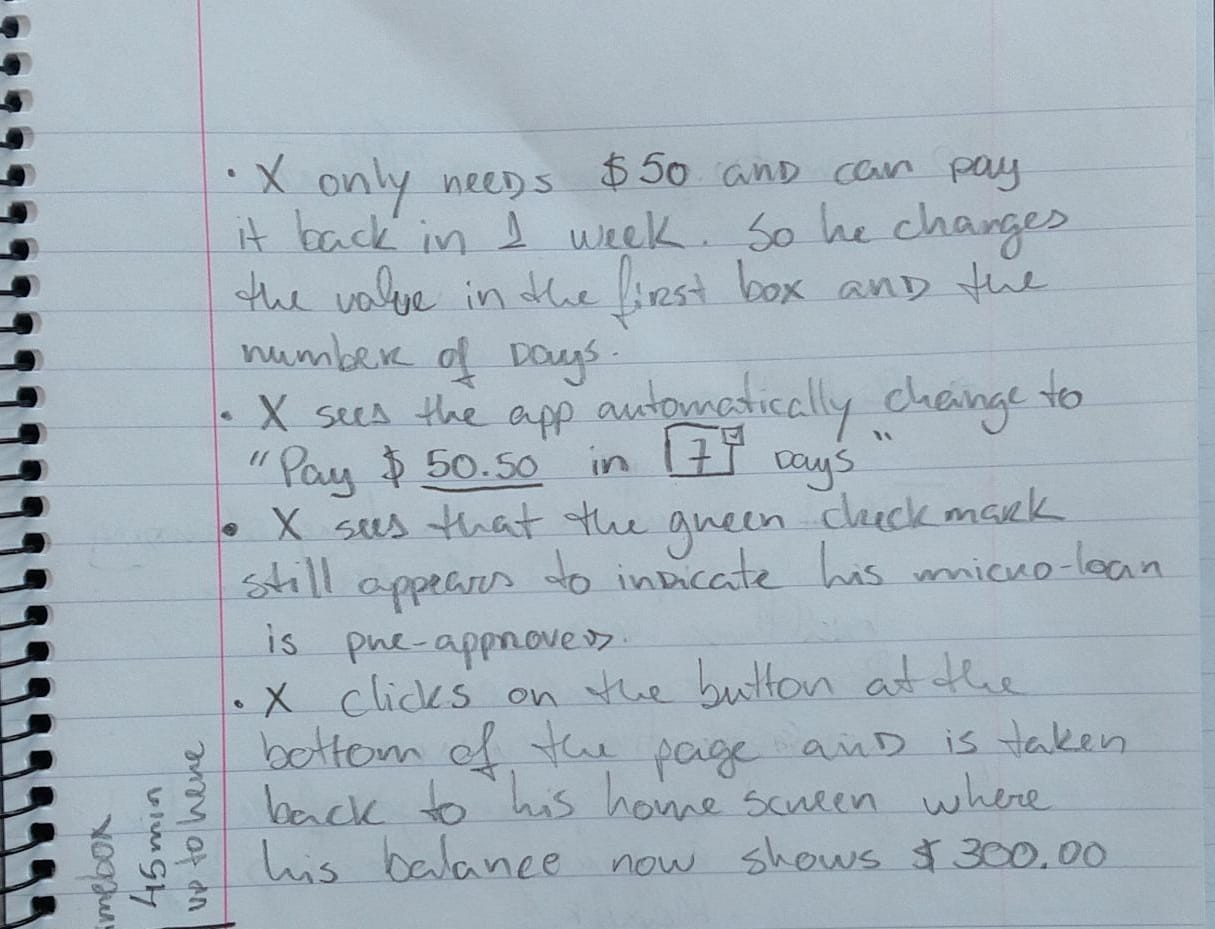 • X only needs $50 and can pay
it back in 1 week. So he changes
the value in the first box and the
number of Days.
• X sees the app automatically change to
"Pay $ 50.50 in 7 Days"
• X sees that the green check mark
still appears to indicate his micro-loan
is pre-approved.
• X clicks on the button at the
bottom of the page and is taken
back to his home screen where
his balance now shows $300.00